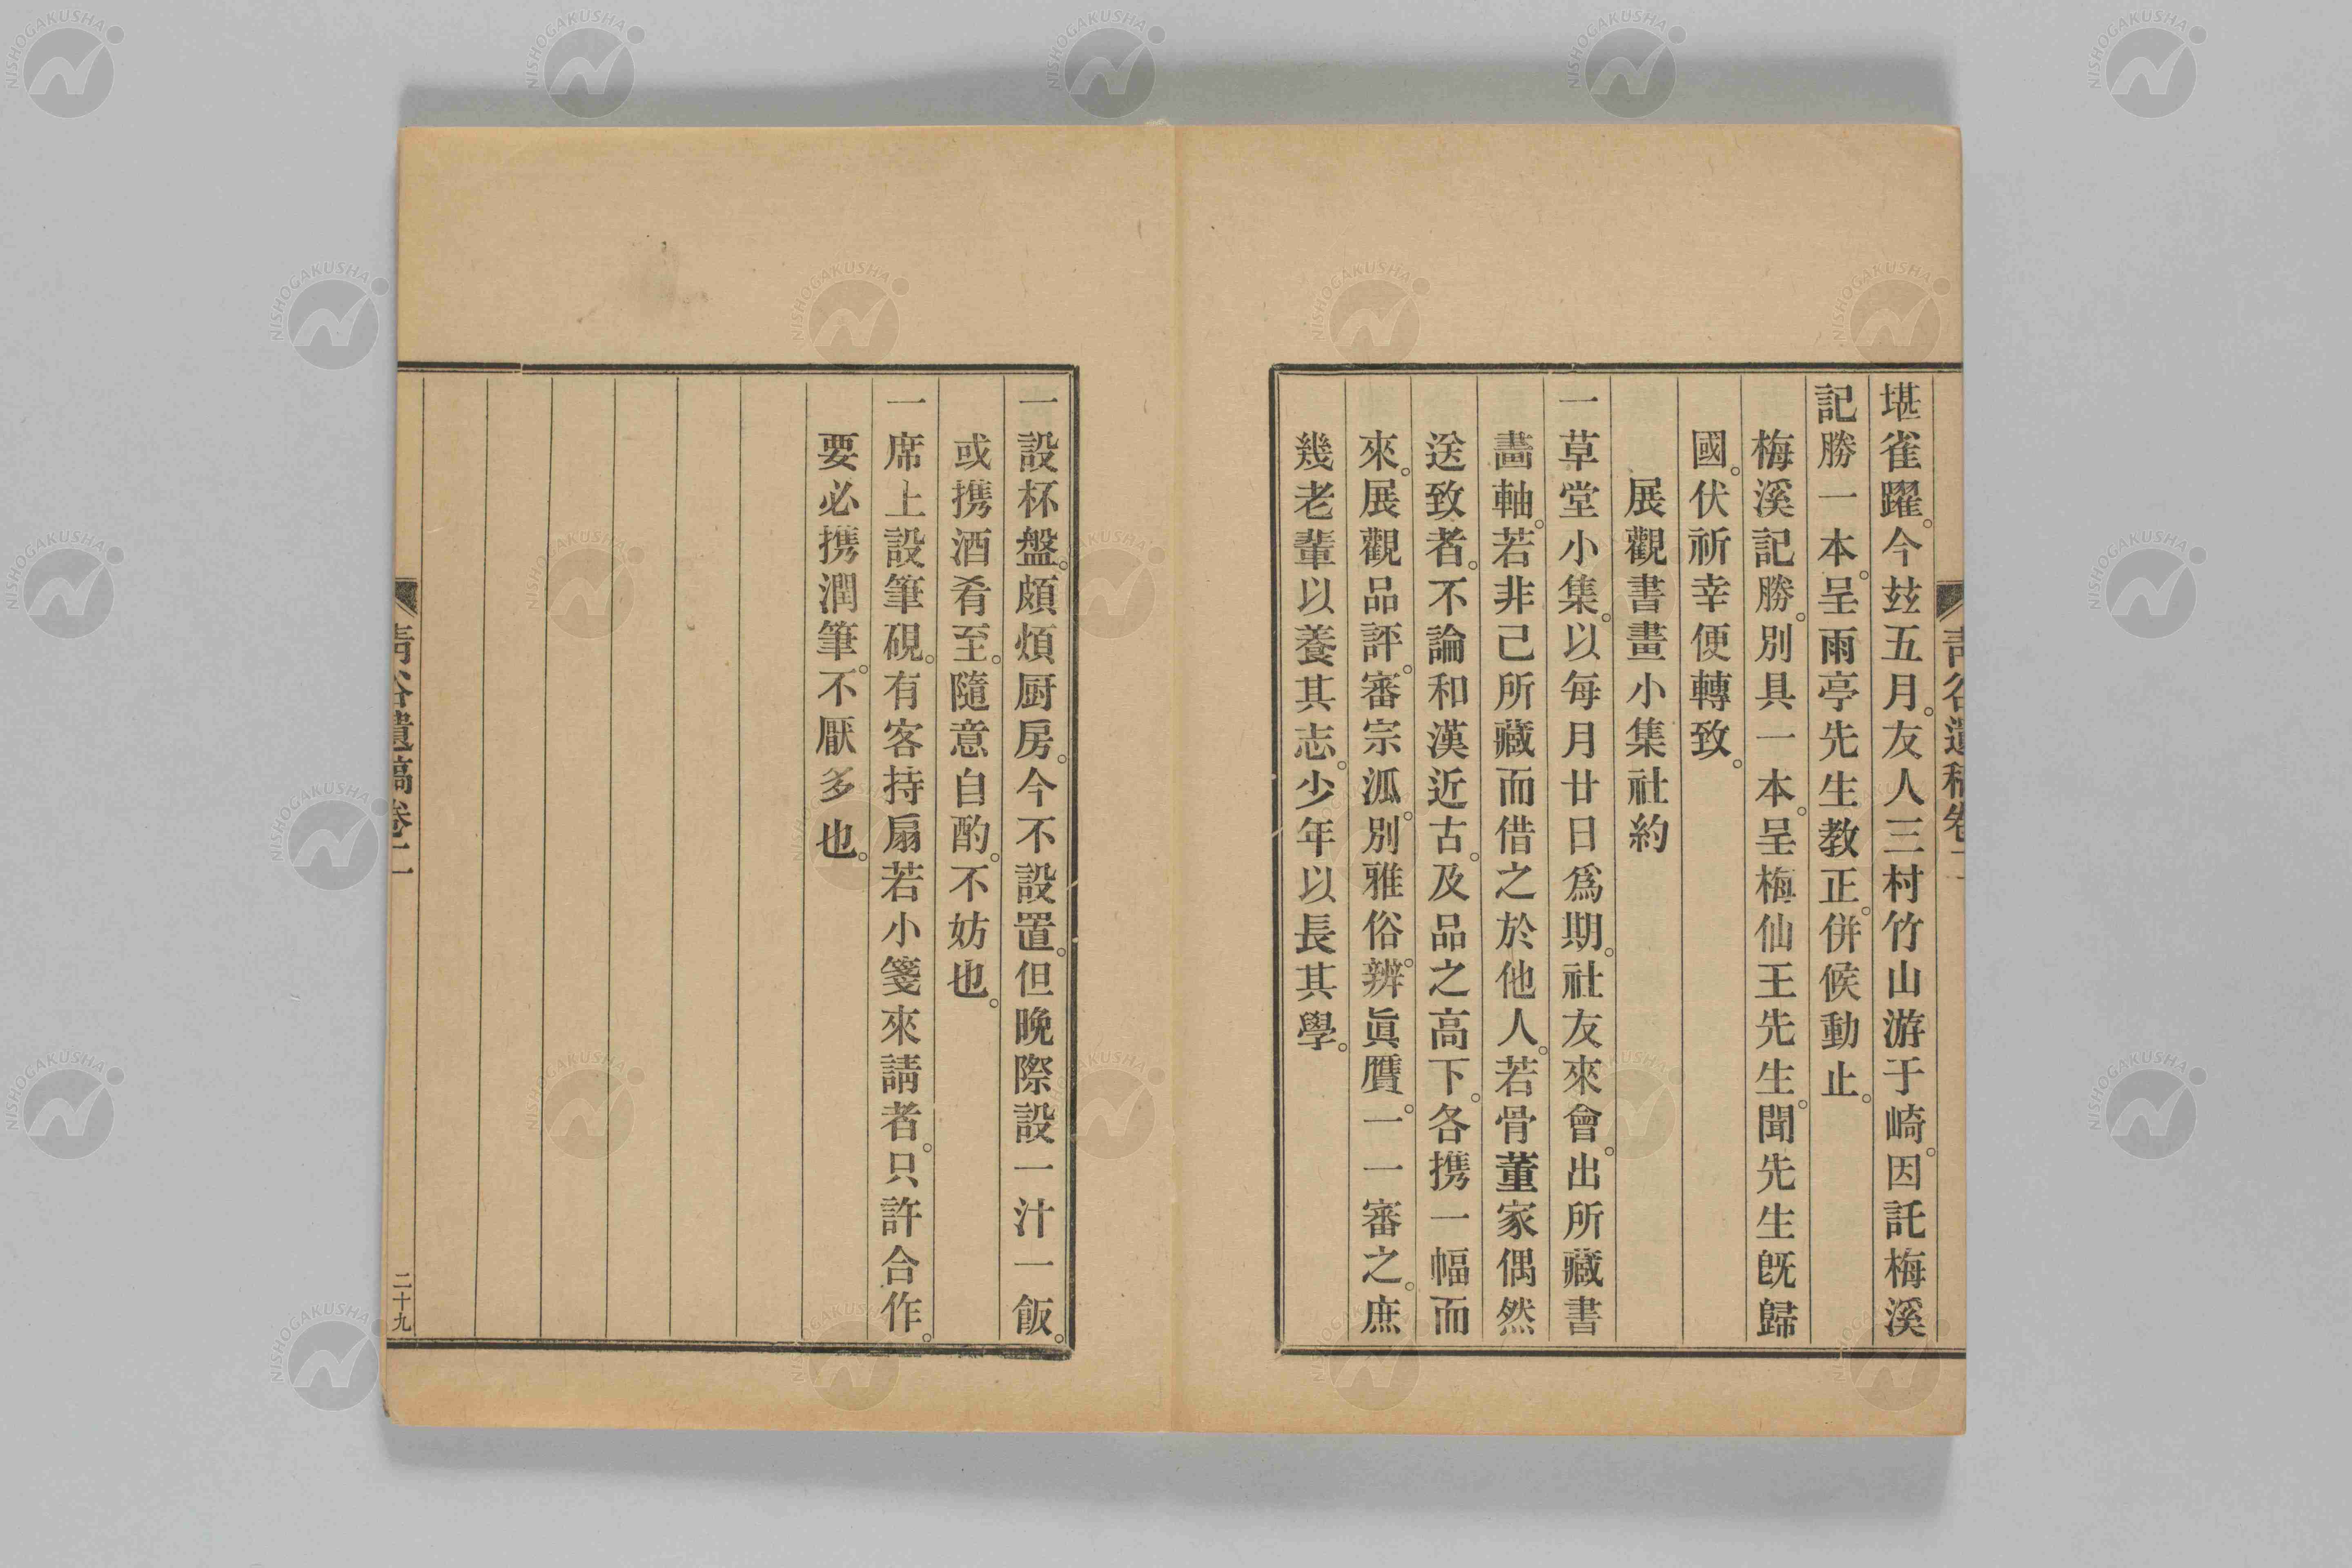 堪雀躍。今玆五月。友人三村竹山游于崎。因託梅溪
記勝一本。呈雨亭先生教正。併候動止。
梅溪記勝。別具一本。呈梅仙王先生。聞先生既歸
國。伏祈幸便轉致。
展觀書畫小集社約
一草堂小集。以每月廿日爲期。社友來會。出所藏書
畵軸。若非己所藏而借之於他人。若骨董家偶然
送致者。不論和漢近古。及品之高下。各携一幅而
來。展觀品評。審宗派。別雅俗。辨眞贋。一一審之。庶
幾老輩以養其志。少年以長其學。
一設杯盤。頗煩厨房。今不設置。但晚際設一汁一飯。
或携酒肴至。隨意自酌。不妨也。
一席上設筆硯。有客持扇若小箋來請者。只許合作。
要必携潤筆。不厭多也。
靑谷遺稿卷二
二十九
NISHOGAKUSHA